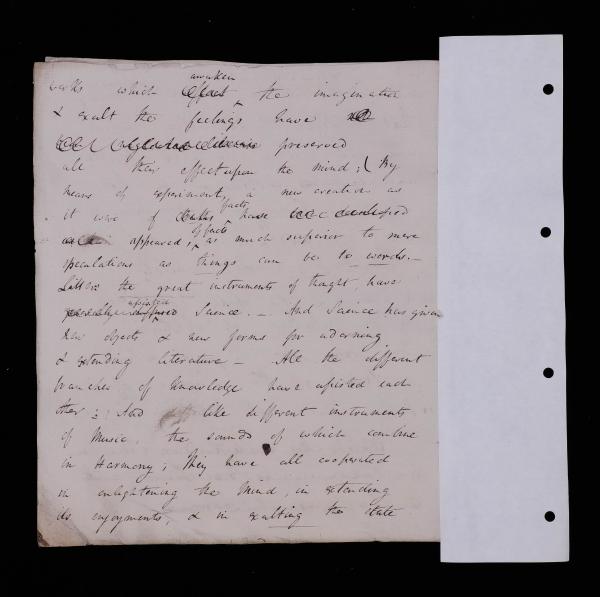 works which effect awaken the imagination
& exalt the feelings have
preserved
all their effect upon the mind; By
means of experiment, a new creation as
it were of facts have developed
appeared, effects as much superior to mere
speculations as things can be to words.–
Letters the great instruments of thought, have
assisted Science. – And Science has given
New objects & new forms for adorning
& extending literature – All the different
branches of knowledge have assisted each
other: And like different instruments
of Music, the sounds of which combine
in Harmony; They have all cooperated
in enlightening the Mind, in extending
its enjoyments, & in exalting the state